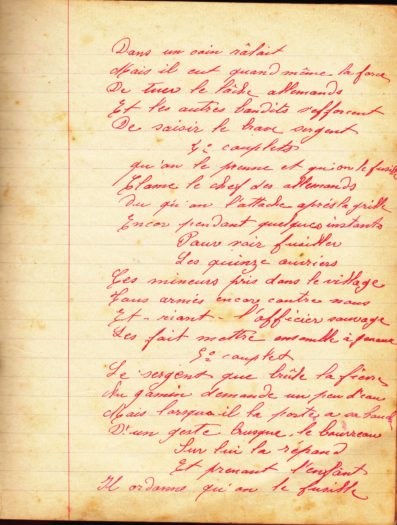 Dans un coin râlait
Mais il eut quand même la force
De tuer le lâche allemands
Et les autres bandits s'efforcent
De saisir le brave sergent
4e couplets
qu'on le prenne et qu'on le fusille
Clame le chef des allemands
ou qu'on l'attache après la grille
Encor pendant quelques instants
Pour voir fusiller
Les quinze ouvriers
Ces mineurs pris dans le village
Tous armés encore contre nous
Et - riant - l'officier sauvage
Les fait mettre ensemble à genoux
5e couplet
Le sergent que brûle la fièvre
Au gamin demande un peu d'eau
Mais lorsque il la porte a sa
D'un geste brusque, le bourreau
Sur lui la répand
Et prenant l'enfant
Il ordonne qu'on le fusille